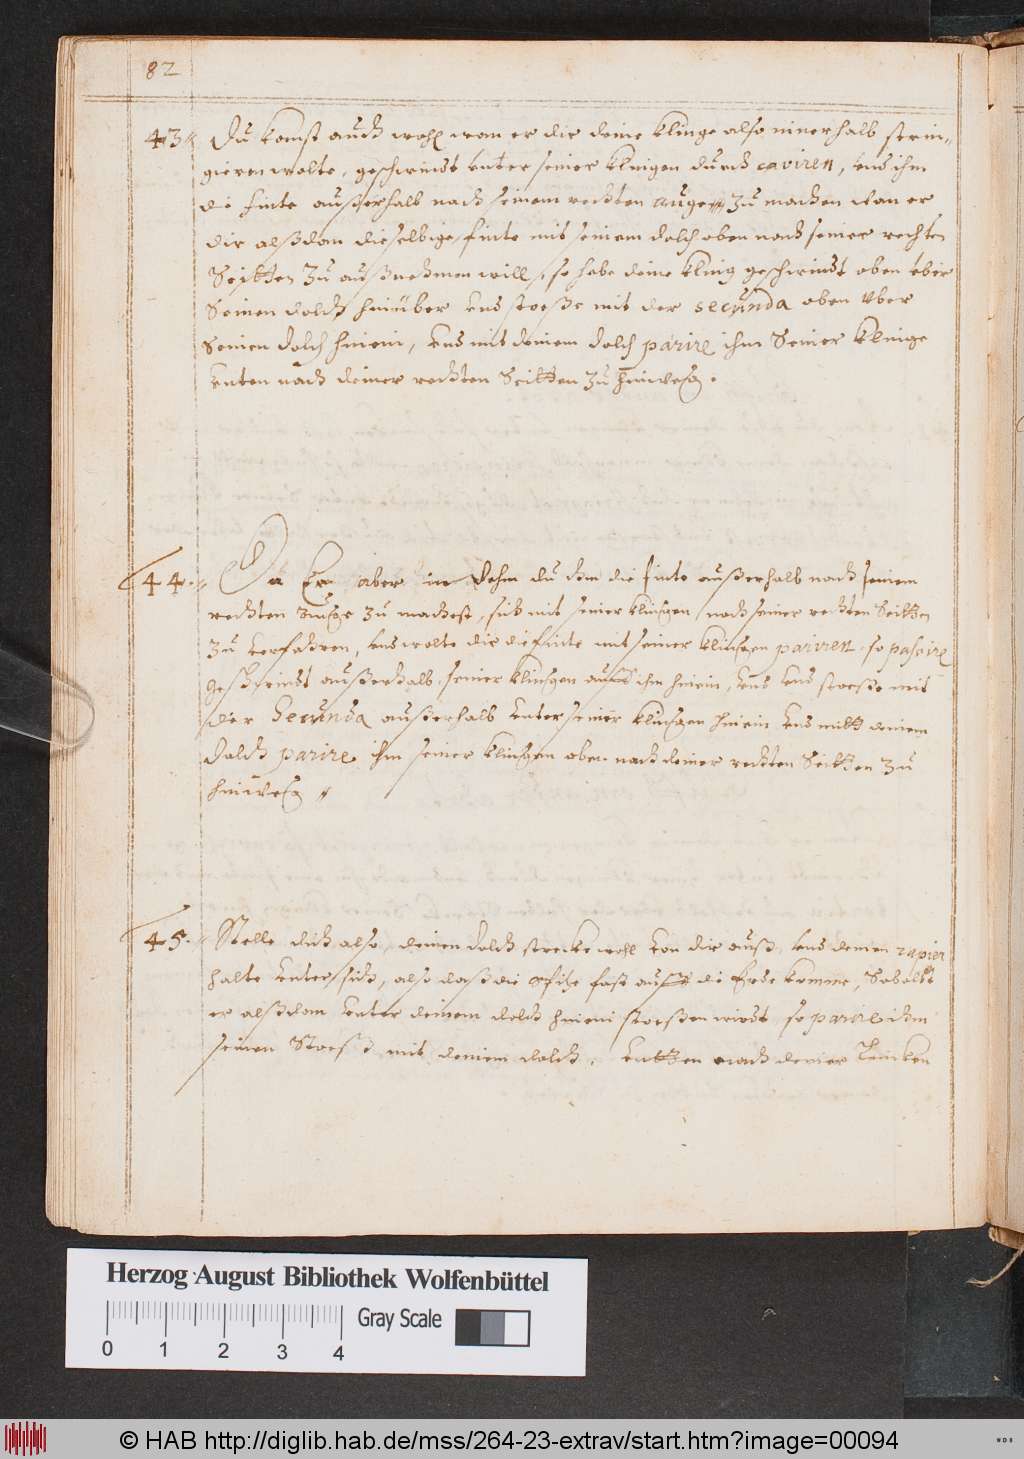 82
43 // Du komst auch wohl wan er dir deine klinge also innerhalb strin-
gieren wolte, geschwindt unter seiner klingen durch caviren, und ihm
die finte außerhalb nach seinem rechten auge // zu machen wan er
dir alßdan dieselbige finte mit seinem dolch oben nach seiner rechten
Seitten zu außnehmen will, so hebe deine kling geschwindt oben über
Seinen dolch hinüber und stoeße mit der secunda oben über
Seinen dolch hinein, und mit deinem dolch parire ihm Seiner klinge
unten nach deiner rechten Seitten zu hinweg.
44. // Da Er aber in dehm du ihm die finte außerhalb nach seinem
rechten auge zu machest, sich mit seiner klingen / nach seiner rechten Seitten
zu verfahren, und wolte dir die finte mit seiner klingen pariren so passire
geschwindt außerhalb seiner klingen auff ihm hinein, und stoeße mit
der Secunda außerhalb unter seiner klingen hinein und mitt deinem
dolch parire ihm seiner klingen oben nach deiner rechten Seitten zu
hinweg //
45. // Stelle dich also, deinen dolch strecke wohl von dir auß, und deinen rapier
halte unter sich, also daß die spitze fast auff die Erde komme, Sobaldt
er alßdan unter deinem dolch hinein stoeßen wirdt so parire ihm
seinen Stoeß mit deinem dolch, untten nach deiner Lincken
Herzog August Bibliothek Wolfenbüttel
Gray Scale
0 1 2 3 4
© HAB http://diglib.hab.de/mss/264-23-extrav/start.htm?image=00094